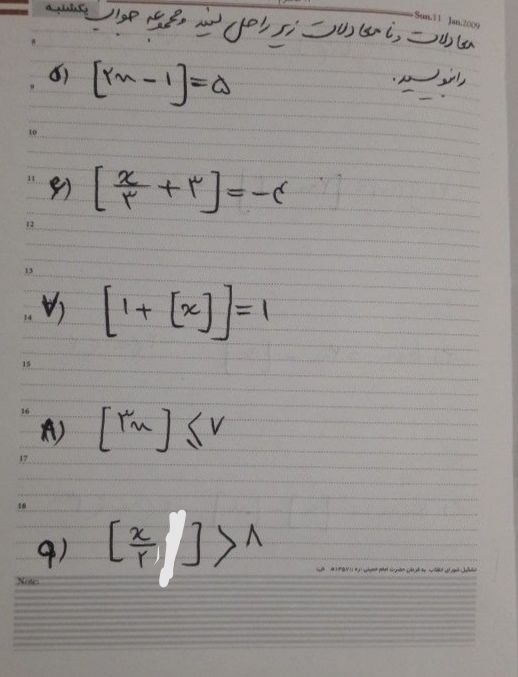 یکشنبه
Sun.11 Jan.2009
معادلات و نامعادلات زیر را حل کنید و مجموعه جواب
را بنویسید.
8
۵) [۲x − ۱] = ۵
9
10
11
۶) [x/۳ + ۳] = −۴
12
13
۷) [۱ + [x]] = ۱
14
15
16
۸) [۳x] ≤ ۷
17
18
۹) [x/۲] > ۸
تشکیل شورای انقلاب به فرمان حضرت امام خمینی (ره) (۱۳۵۷ ه.ش)
Note: